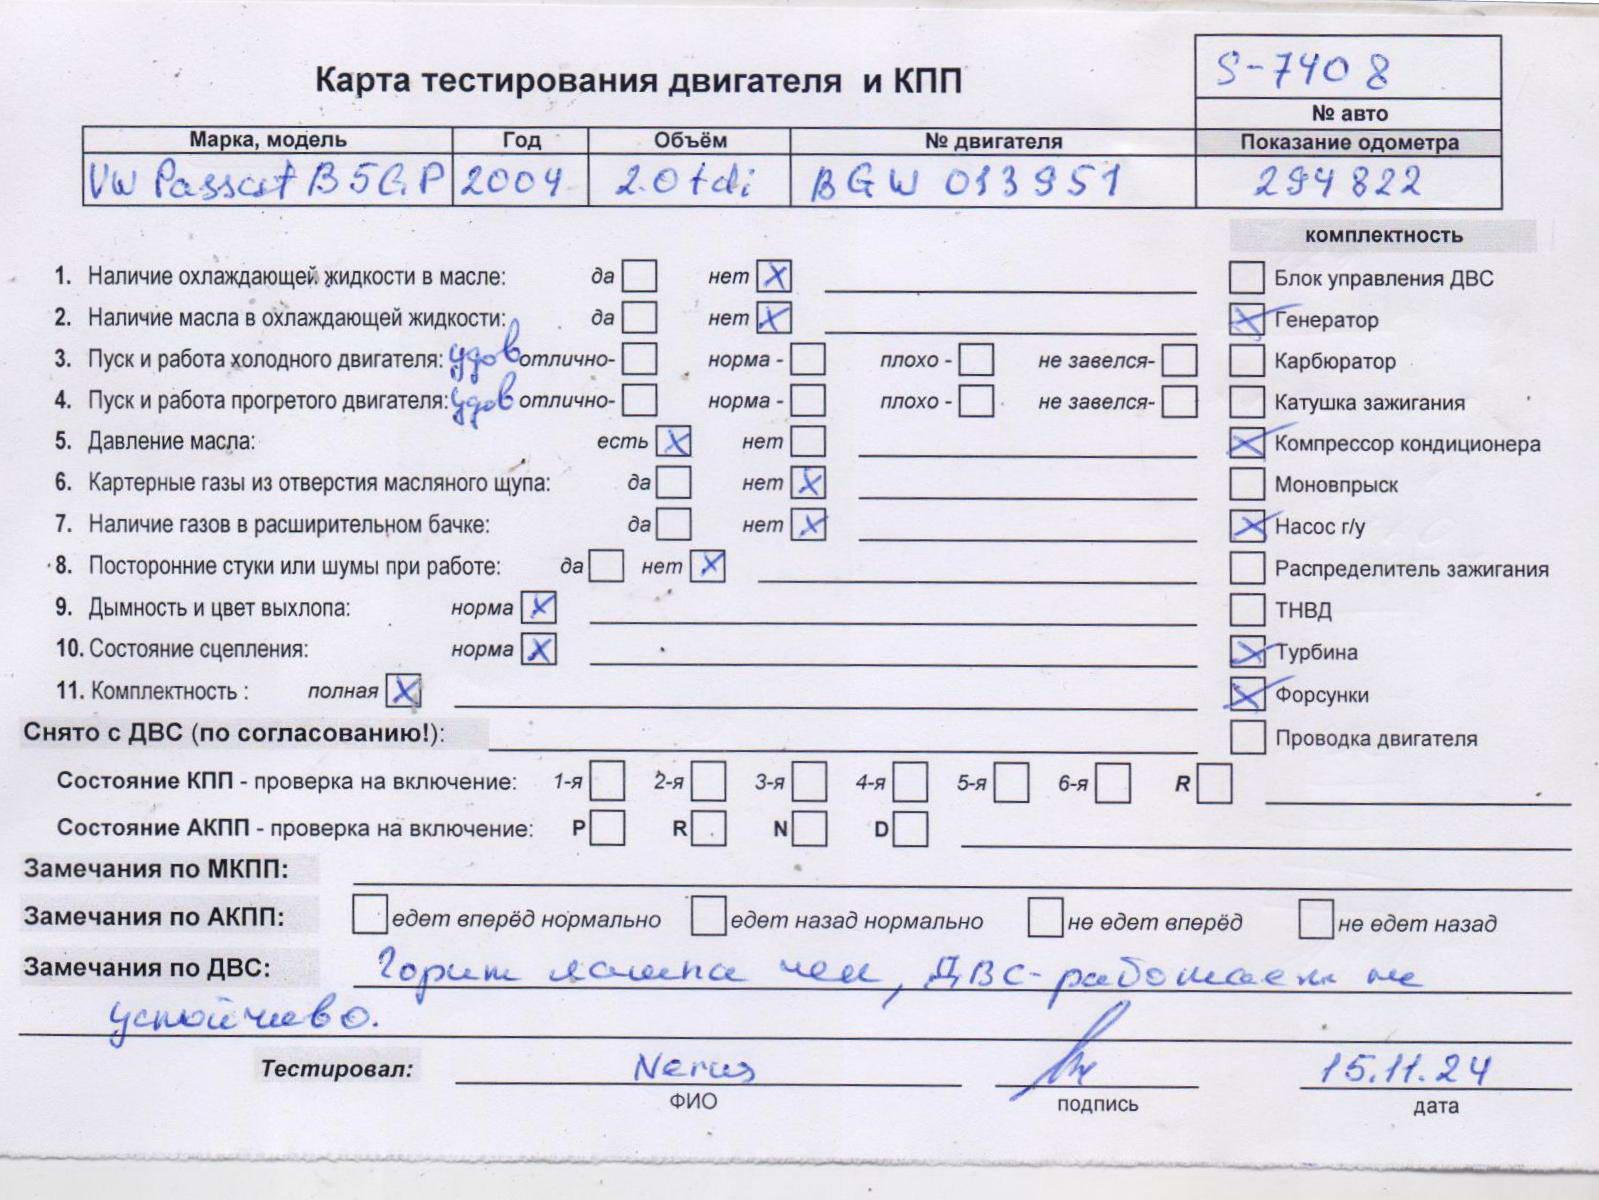 S-7408
Карта тестирования двигателя и КПП
№ авто
Марка, модель Год Объём № двигателя Показание одометра
VW Passat B5G.P 2004 2.0tdi BGW 013951 294822
комплектность
1. Наличие охлаждающей жидкости в масле: да нет X Блок управления ДВС
2. Наличие масла в охлаждающей жидкости: да нет X X Генератор
3. Пуск и работа холодного двигателя: удов отлично- норма - плохо - не завелся- Карбюратор
4. Пуск и работа прогретого двигателя: удов отлично- норма - плохо - не завелся- Катушка зажигания
5. Давление масла: есть X нет X Компрессор кондиционера
6. Картерные газы из отверстия масляного щупа: да нет X Моновпрыск
7. Наличие газов в расширительном бачке: да нет X X Насос г/у
8. Посторонние стуки или шумы при работе: да нет X Распределитель зажигания
9. Дымность и цвет выхлопа: норма X ТНВД
10. Состояние сцепления: норма X X Турбина
11. Комплектность : полная X X Форсунки
Снято с ДВС (по согласованию!): Проводка двигателя
Состояние КПП - проверка на включение: 1-я 2-я 3-я 4-я 5-я 6-я R
Состояние АКПП - проверка на включение: P R N D
Замечания по МКПП:
Замечания по АКПП: едет вперёд нормально едет назад нормально не едет вперёд не едет назад
Замечания по ДВС: Горит лампа чек, ДВС-работает не
устойчиво.
Тестировал: 15.11.24
ФИО подпись дата